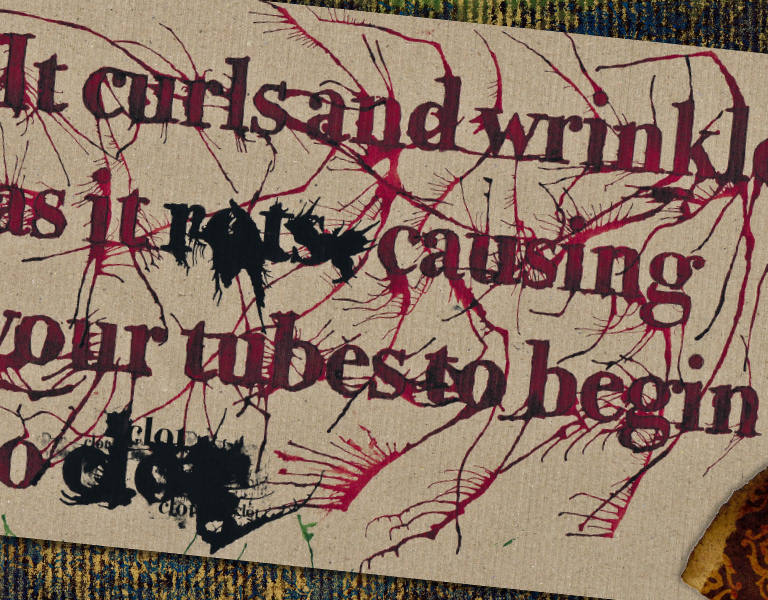 It curls and wrinkle
as it rots, causing
your tubes to begin
o clog